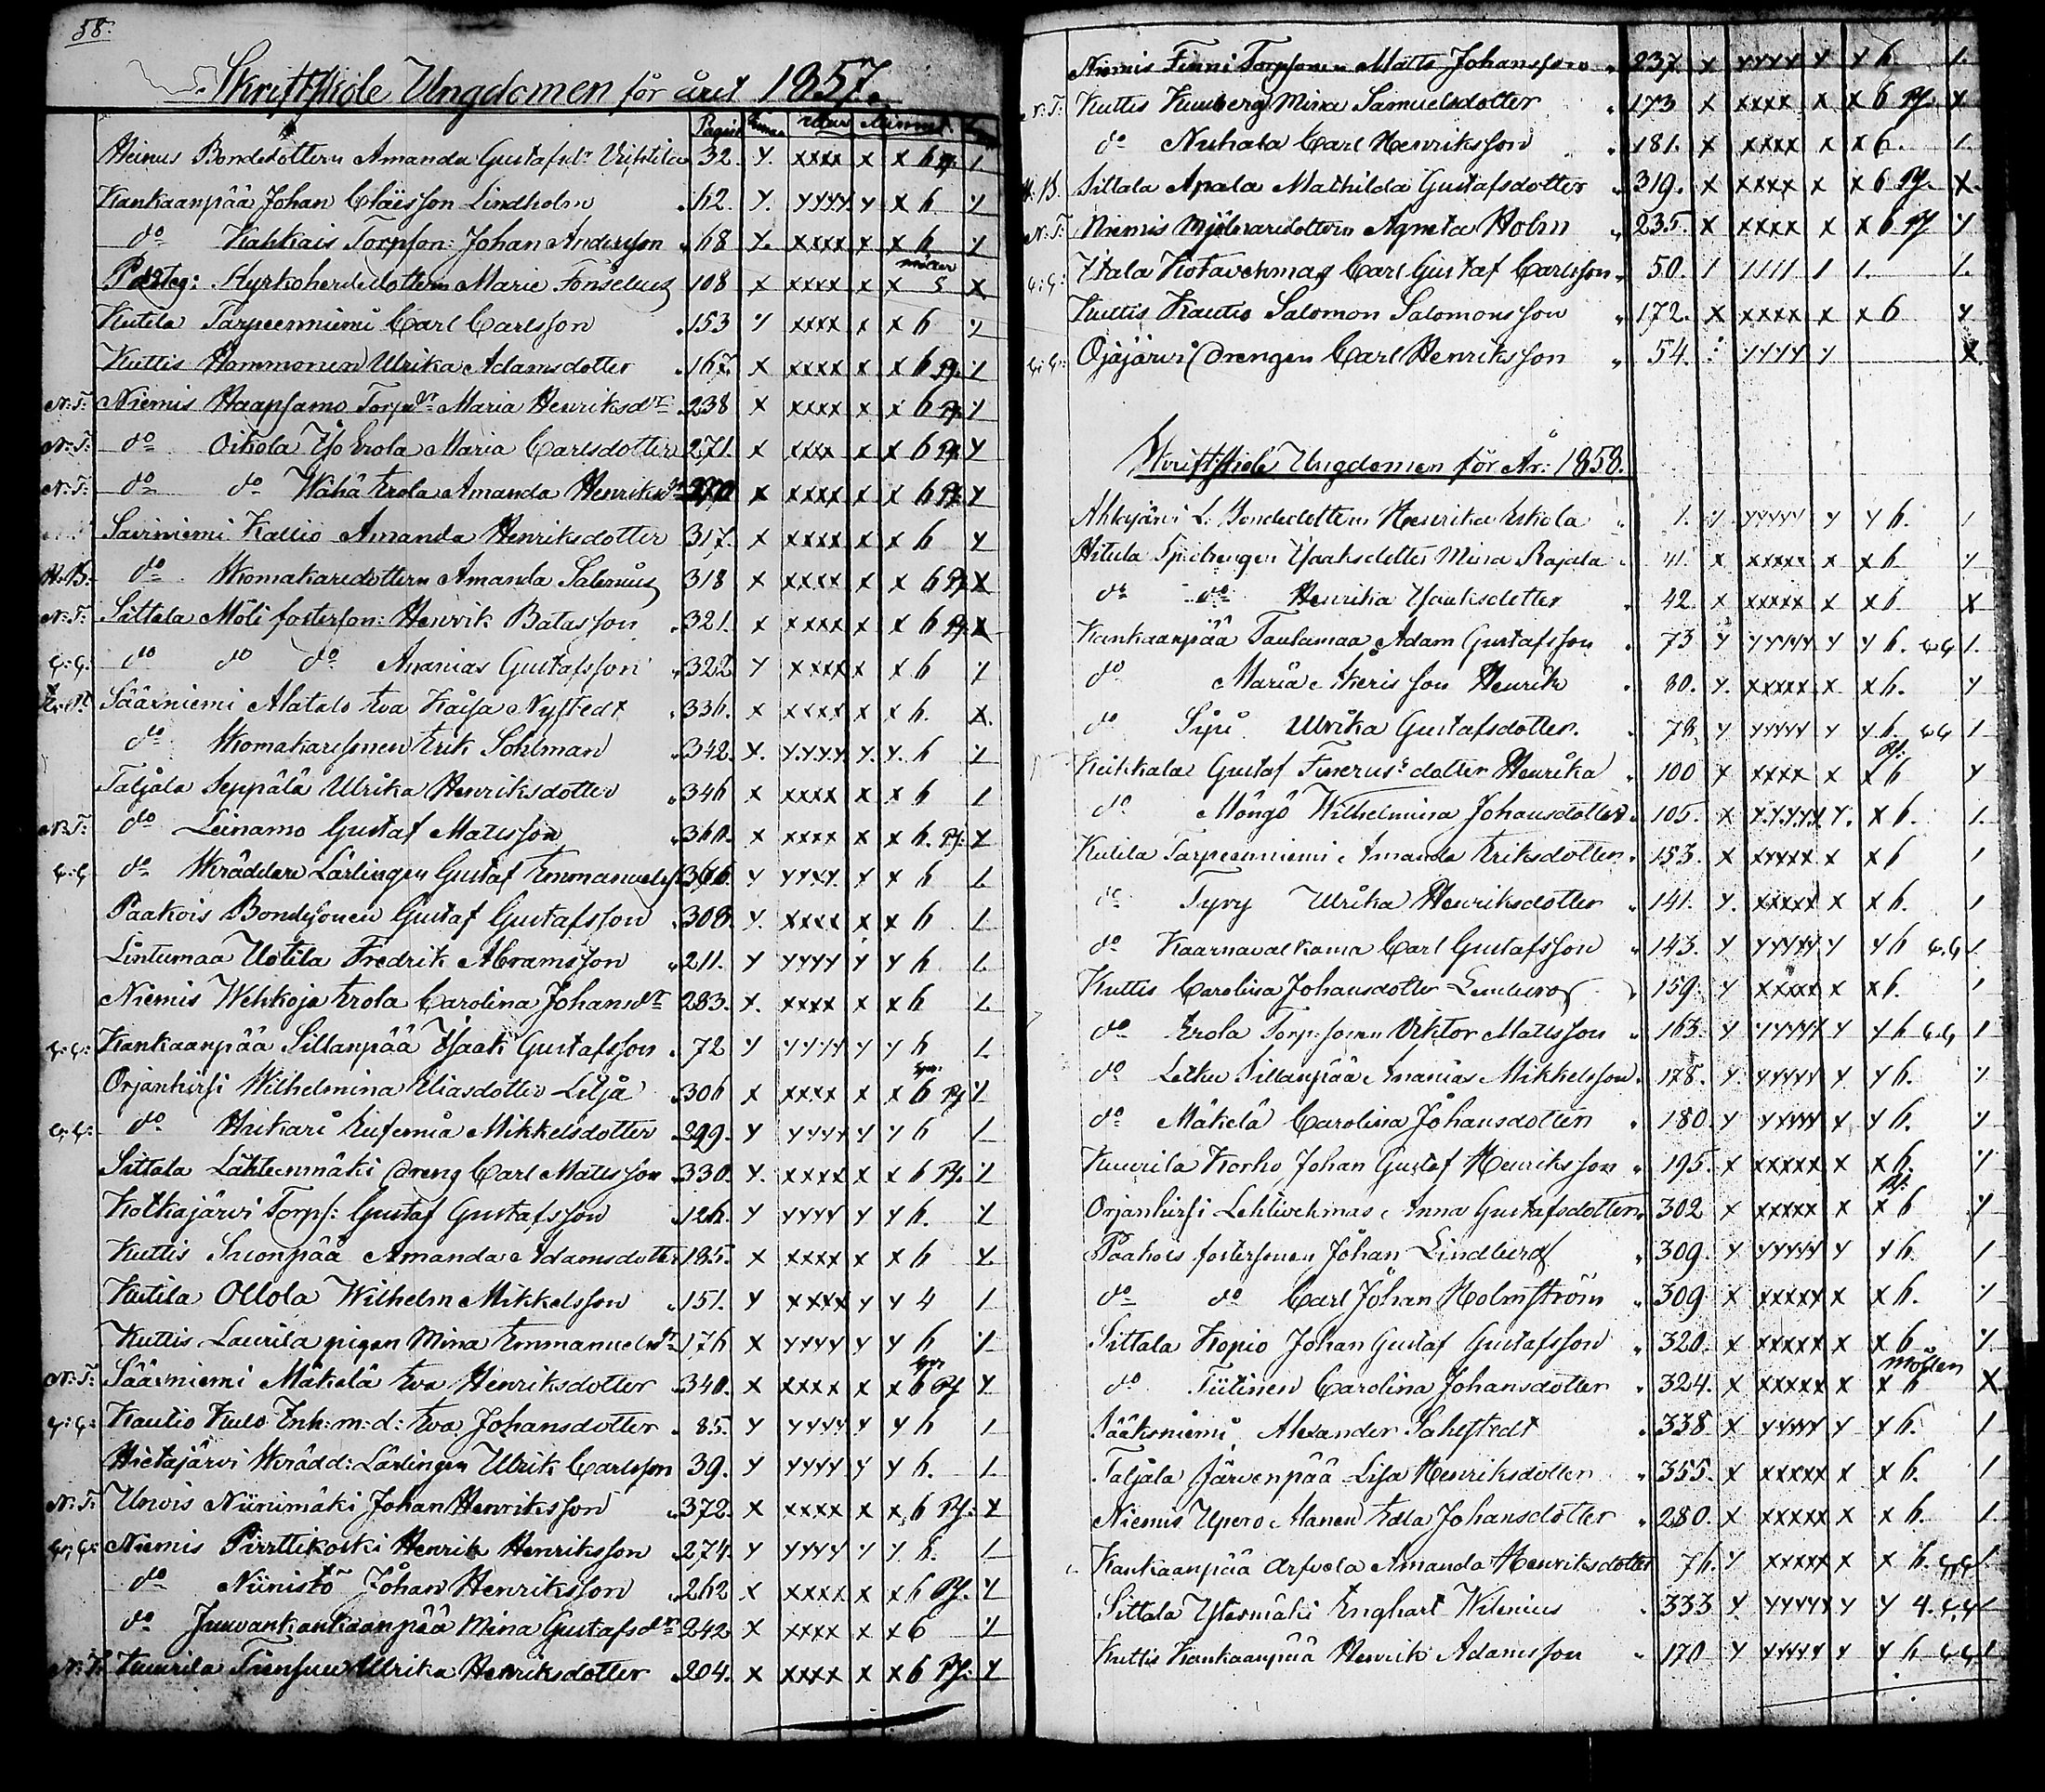 58.
Skriftskole Ungdomen för året 1857.
Pagina utur Minnet
Heinus Bondedottern Amanda Gustafsdr Uhstila 32. y. xxxx x x 6 Pf. 1
Kankaanpää Johan Claësson Lindholm 62. y. yyyy y x 6 y
do Kahkais Torpson: Johan Andersson 68 y. xxxx x x 6 y
Kyrkoherdedottern Marie Fonselius 108 x xxxx x x 5 x
Kutila Tarpeenniemi Carl Carlsson 153 y xxxx x x 6 y
Kuttis Hommonen Ulrika Adamsdotter 167. x xxxx x x 6 Pf. 1
N:T: Niemis Haapsamo Torpdr Maria Henriksdr 238 x xxxx x x 6 Pf. y
N:T: do Oikola Yso Erola Maria Carlsdotter 271. x xxxx x x 6 Pf y
N:T: do do Wähä Erola Amanda Henriksdr x xxxx x x 6 Pf y
Säirniemi Kallio Amanda Henriksdotter 317. x xxxx x x 6 y
N.B. do Skomakaredottern Amanda Salenius 318 x xxxx x x 6 Pf x
N:T: Sittala Möli fosterson: Henrik Batasson 321. x xxxx x x 6 Pf x
G:G. do do do Ananias Gustafsson 322 y xxxx x x 6 y
Säärniemi Alatalo Eva Kaisa Nystedt 336. x xxxx x x 6. x.
do Skomakaressonen Erik Sohlman 342. x. y.y.y.y. y. y. 6 y
Taljala Seppälä Ulrika Henriksdotter 346 x xxxx x x 6 1
N:T: do Leinamo Gustaf Mattsson 360. x xxxx x x 6. Pf: y
G:G do Skräddare Lärlingen Gustaf Emmanuelss 366. y yyyy. y x 6 1.
Paakois Bondesonen Gustaf Gustafsson 308. y. xxxx x x 6 1
Lintumaa Uotila Fredrik Abramsson 211. y yyyy y y 6 1.
Niemis Wehkoja Erola Carolina Johansdr 283. x. xxxx x x 6 1.
G:G: Kankaanpää Sillanpää Isaak Gustafsson 72 y yyyy y y 6 1.
Orjanhirsi Wilhelmina Eliasdotter Lilja 306 x xxxx x x 6 Pf y
G:G: do Haikari Eufemia Mikkelsdotter 299. y yyyy y y 6 1
Sittala Lähteenmäki dreng Carl Mattsson 330. y. xxxx x x 6 Pf. y
Kotkajärvi Torps: Gustaf Gustafsson 126. y yyyy y y 6. y
Kuttis Suonpää Amanda Adamsdotter 185. x xxxx x x 6 y.
Kutila Ollola Wilhelm Mikkelsson 151. y xxxx y y 4 1
Kuttis Laurila pigan Mina Emmanuelsdr 176 x yyyy y y 6 y
N:T: Säärniemi Mäkelä Eva Henriksdotter 340. x xxxx x x 6 Pf y
G:G: Kautio Kulo Enk: m: d: Eva Johansdotter 85. y yyyy y y 6 1
Hietajärvi Skrädd: Lärlingen Ulrik Carlsson 39. y yyyy y y 6. 1
N:T: Urvois Niinimäki Johan Henriksson 372. x xxxx x x 6 Pf: x
G:G: Niemis Pirttikoski Henrik Henriksson 274. y yyyy y y 6. 1
do Niinistö Johan Henriksson 262 x xxxx x x 6 Pf. y
do Juuvankankaanpää Mina Gustafsdr 242 x xxxx x x 6 y
N:T: Kuurila Tiensuu Ulrika Henriksdotter 204. x xxxx x x 6 Pf: y
Niemis Finni Torpsonen Matts Johansson 237. x yyyy y y 6. 1.
N:T: Kuttis Kumberg Mina Samuelsdotter 173 x xxxx x x 6 Pf. x
do Nuhala Carl Henriksson 181. x xxxx x x 6. 1.
N.B. Sittala Apala Mathilda Gustafsdotter 319. x xxxx x x 6 Pf. x.
N:T: Niemis Mjölnaredottern Agneta Holm 235. x xxxx x x 6 Pf y
G:G: Itala Hotavehmas Carl Gustaf Carlsson 50. 1 1111 1 1. 1.
Kuttis Kautio Salomon Salomonsson 172. x xxxx x x 6 y
G:G: Ojajärvi drengen Carl Henriksson 54. yyyy y x
Skriftskole Ungdomen för År: 1858.
Ahlajärvi L. Bondedottern Henrika Eskola 1. y yyyyy y y 6. 1
Hitula Isaksdotter Mina Rajala 41. x xxxxx x x 6 y
do do Henrika Isaaksdotter 42. x xxxxx x x 6 x
Kankaanpää Taulamaa Adam Gustafsson 73 y yyyyy y y 6. GG 1.
do Maria Askeris son Henrik 80. y. xxxxx x x 6. y
do Sipi Ulrika Gustafsdotter. 78. y yyyyy y y 6. GG 1
Keikkala Gustaf dotter Henrika 100 y xxxx x x 6 Pf: y
do Möngö Wilhelmina Johansdotter 105. x y.y.y.y.y. y. x 6. 1.
Kutila Tarpeenniemi Amanda Eriksdotter 153. x xxxxx x x 6 1
do Tyry Ulrika Henriksdotter 141. y. xxxxx x x 6. 1
do Kaarnavalkama Carl Gustafsson 143. y yyyyy y y 6 G.G 1
Kuttis Carolina Johansdotter Lemberg 159. y xxxxx x x 6. 1
do Erola Torpsonen Viktor Mattsson 163. y yyyyy y y 6 GG 1
do Letku Sillanpää Ananias Mikkelsson 178. y. yyyyy y y 6. y
do Mäkelä Carolina Johansdotter 180. y yyyyy x y 6. y
Kuurila Korho Johan Gustaf Henriksson 195. x xxxxx x x 6. y
Orjanhirsi Lehtivehmas Anna Gustafsdotter 302 x xxxxx x x 6 Pf. y
Paakois fostersonen Johan Lindberg 309. y yyyyy y y 6. 1
do do Carl Johan Holmström 309 x xxxxx x x 6. y
Sittala Kopio Johan Gustaf Gustafsson 320. x xxxxx x x 6 y.
do Tiitinen Carolina Johansdotter 324. x xxxxx x x 6 x
Jääksniemi Alexander Sahlstedt 338 x yyyyy y y 6. 1
Taljala Järvenpää Lisa Henriksdotter 355. x xxxxx x x 6. 1
Niemis Upero Manen Edla Johansdotter 280. x xxxxx x x 6. 1.
Kankaanpää Arfvela Amanda Henriksdotter 76. y xxxxx x x 6. GG 1.
Sittala Ylesmäki Enghart Wilenius 333 y. yyyyy y y 4. GG 1
Kuttis Kankaanpää Henrik Adamsson 170 y yyyyy y y 6 GG 1